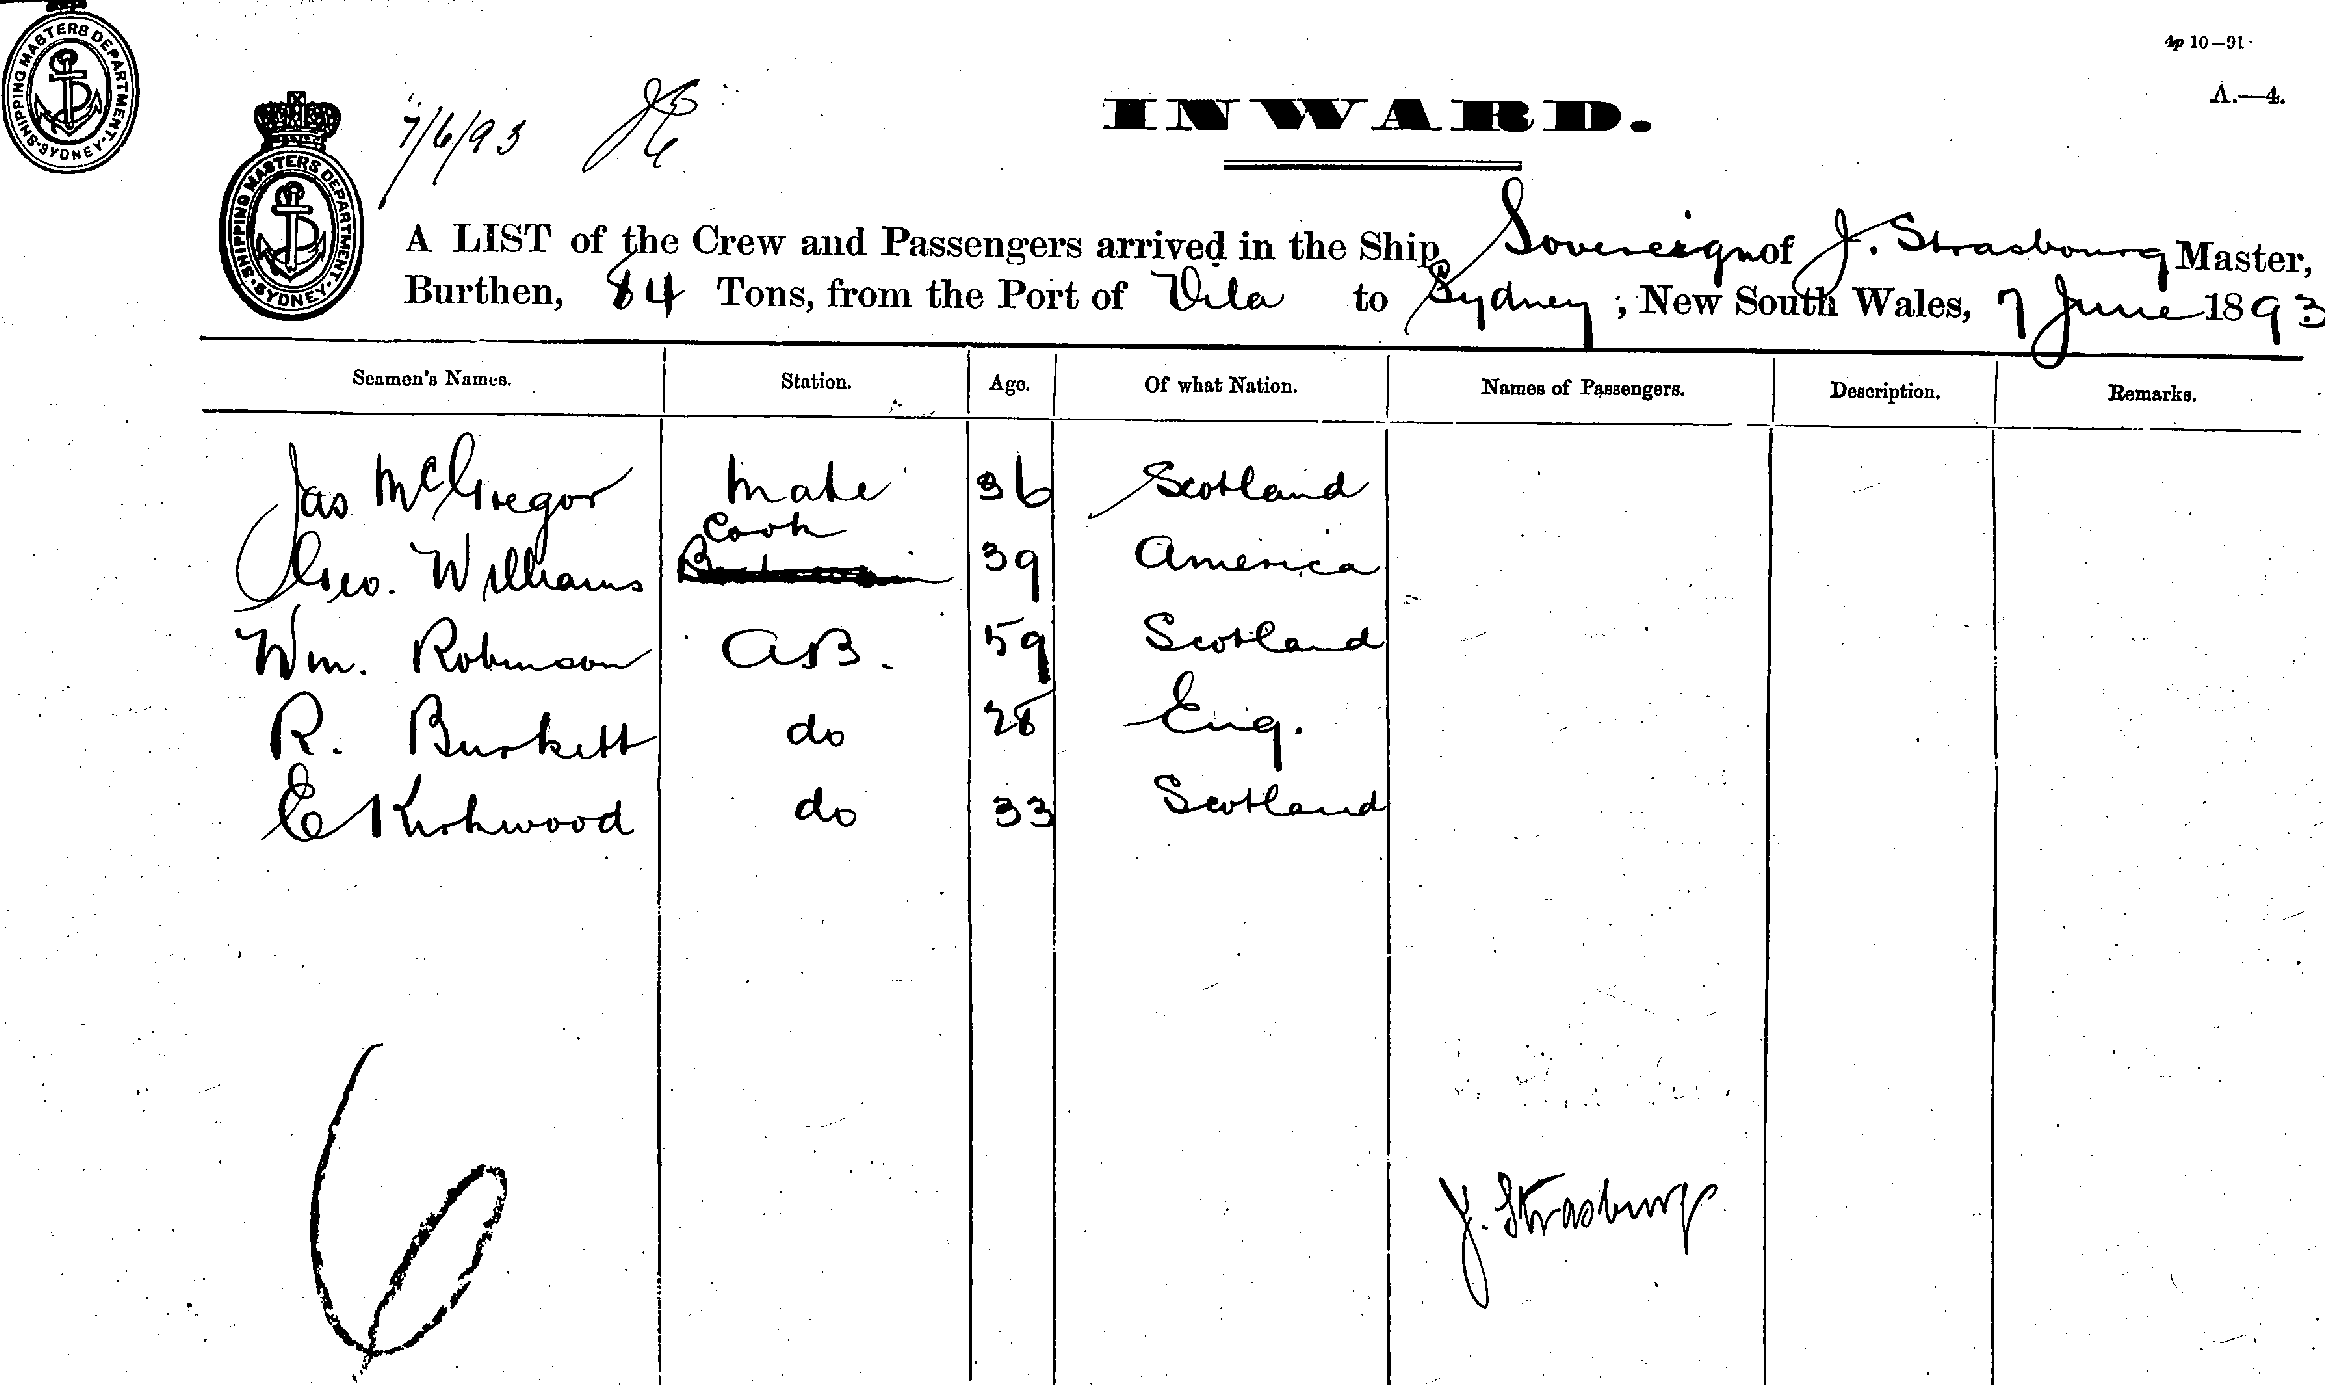 SHIPPING MASTERS DEPARTMENT · SYDNEY ·
4p 10—91
A.—4.
7/6/93
INWARD.
SHIPPING MASTERS DEPARTMENT · SYDNEY ·
A LIST of the Crew and Passengers arrived in the Ship Sovereign of J. Strasbourg Master,
Burthen, 84 Tons, from the Port of Vila to Sydney, New South Wales, 7 June 1893
Seamen's Names. Station. Age. Of what Nation. Names of Passengers. Description. Remarks.
Jas McGregor Mate 36 Scotland
Geo. Williams Cook 39 America
Wm. Robinson AB. 59 Scotland
R. Burkett do 28 Eng.
E Kirkwood do 33 Scotland
6
J. Strasburg